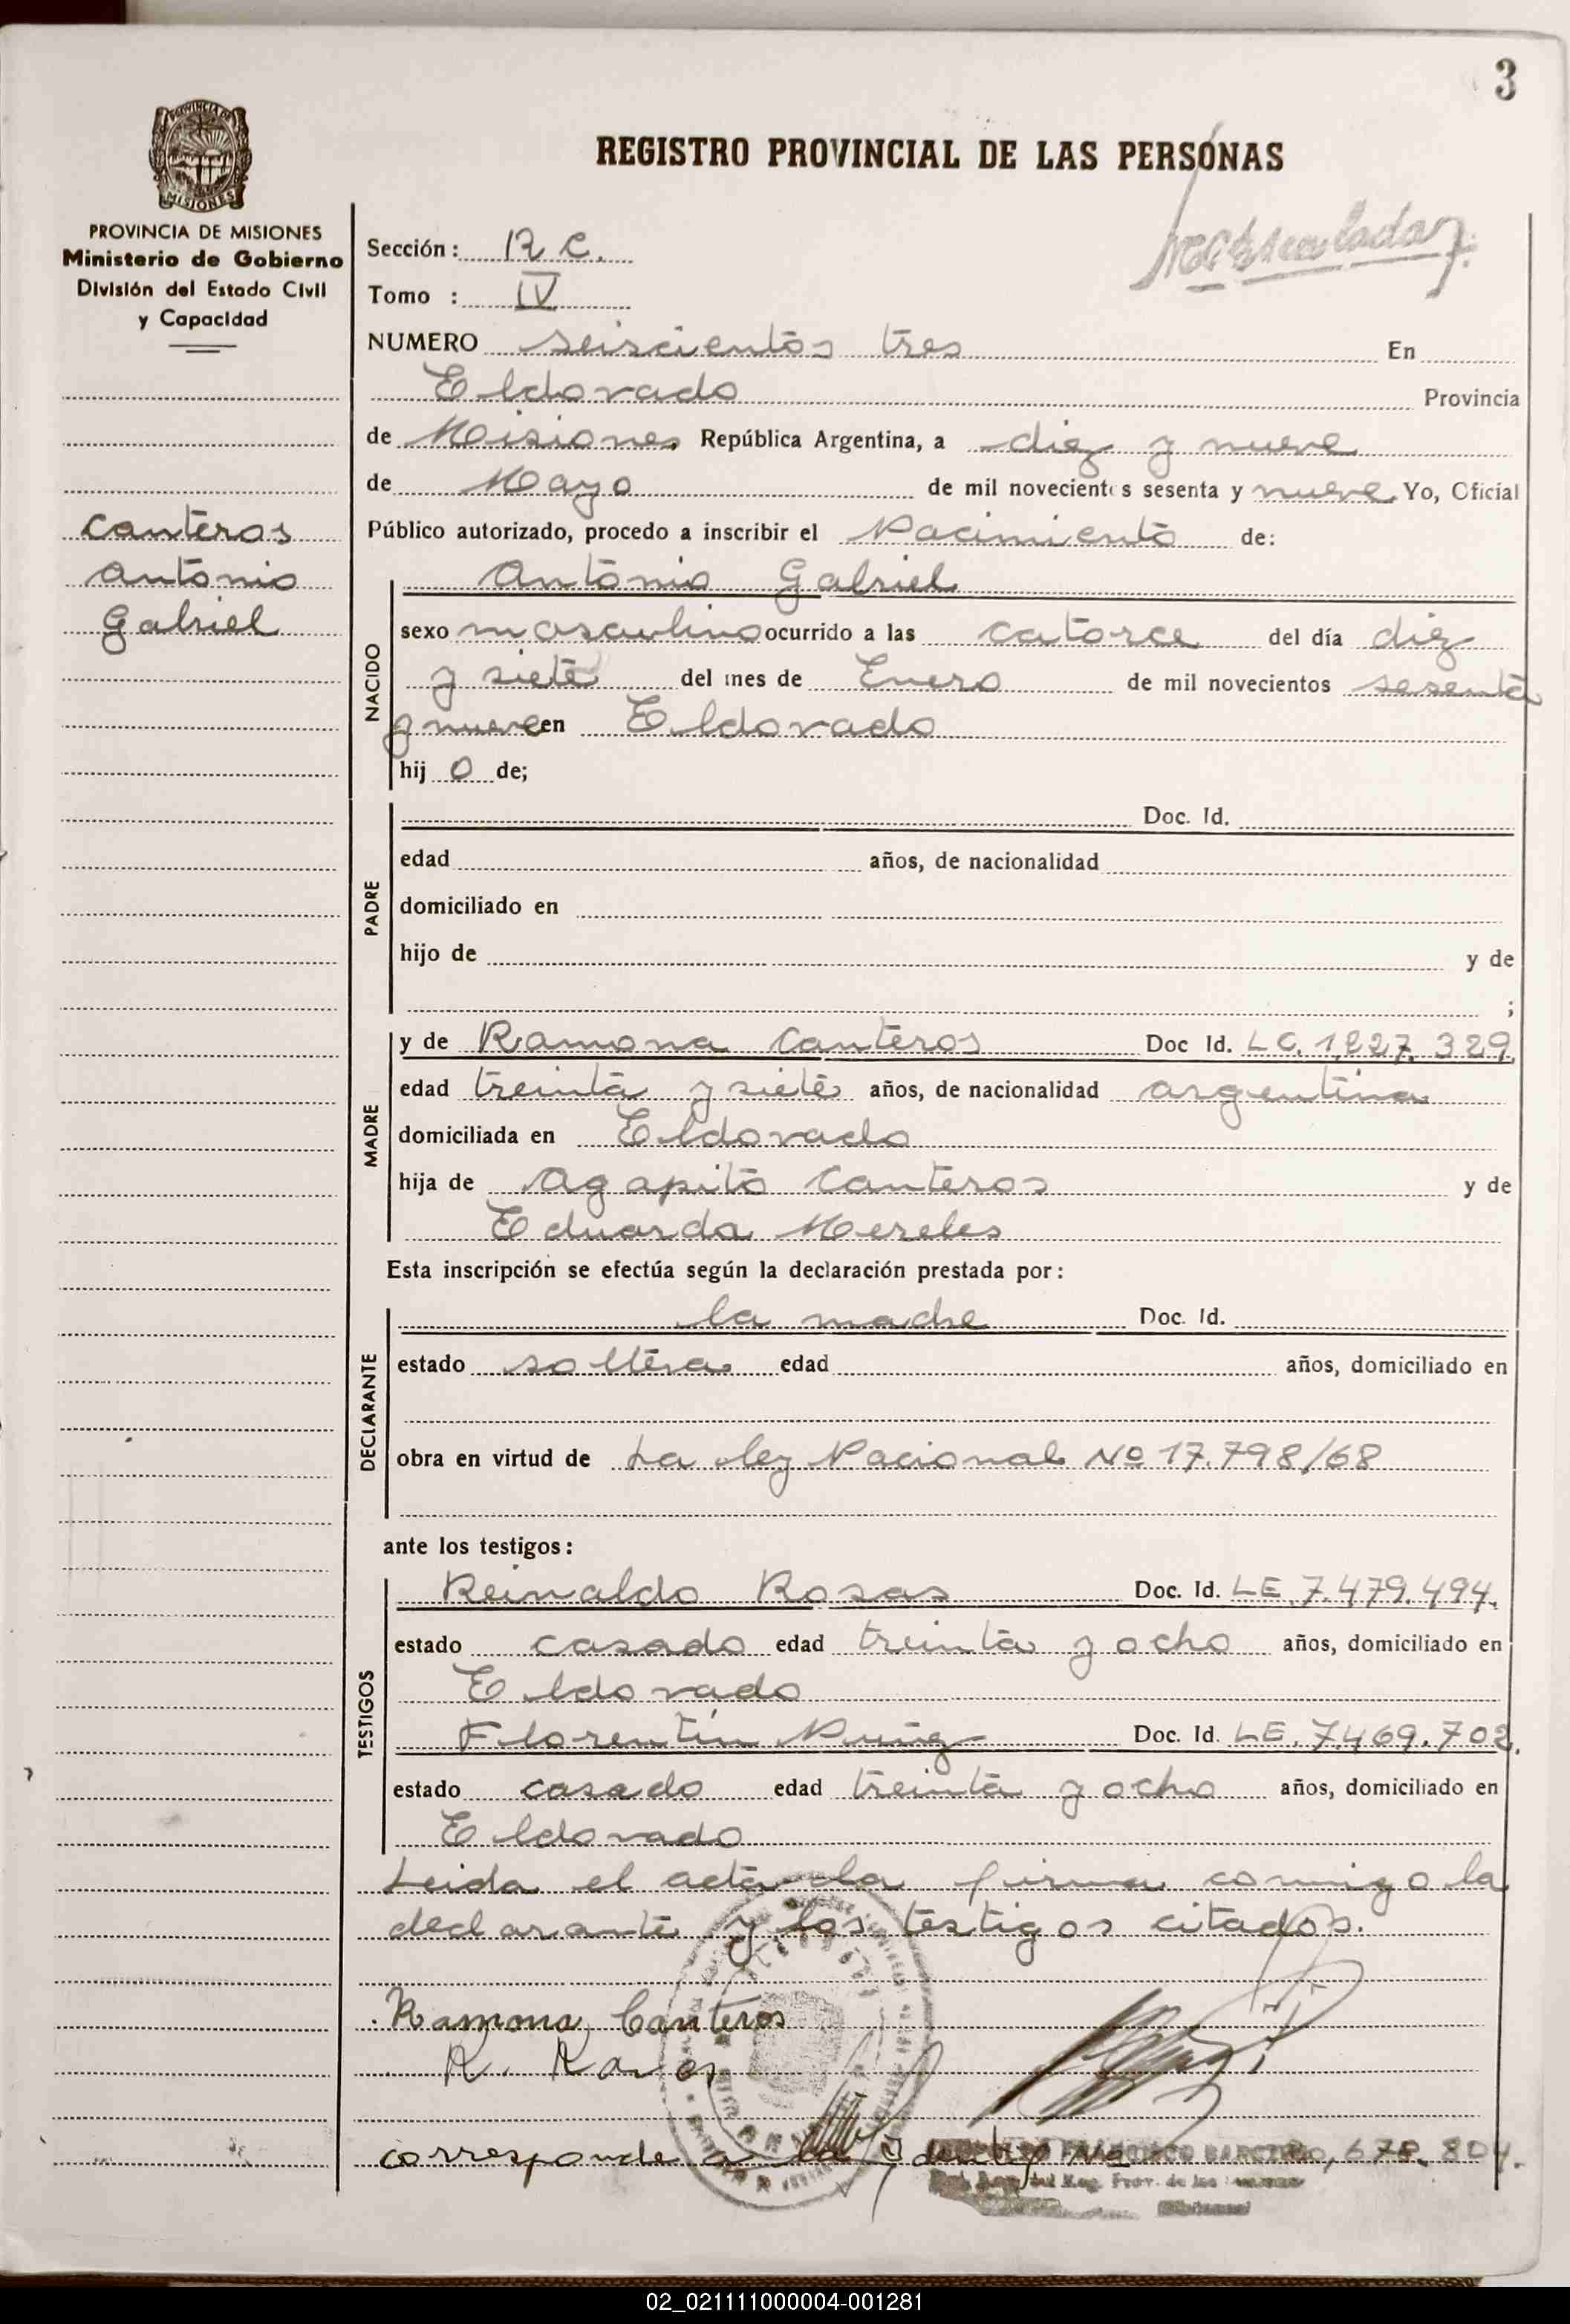 3
REGISTRO PROVINCIAL DE LAS PERSONAS
PROVINCIA DE
MISIONES
PROVINCIA DE MISIONES
Ministerio de Gobierno
División del Estado Civil
y Capacidad
Canteros
Antonio
Gabriel
Sección:
Tomo : IV
NUMERO seiscientos tres En
Eldorado Provincia
de Misiones República Argentina, a diez y nueve
de Mayo de mil novecientos sesenta y nueve Yo, Oficial
Público autorizado, procedo a inscribir el Nacimiento de:
NACIDO
Antonio Gabriel
sexo masculino ocurrido a las catorce del día diez
y siete del mes de Enero de mil novecientos sesenta
y nueve en Eldorado
hij o de;
PADRE
Doc. Id.
edad años, de nacionalidad
domiciliado en
hijo de y de
;
MADRE
y de Ramona Canteros Doc Id. LC. 1.227.329
edad treinta y siete años, de nacionalidad argentina
domiciliada en Eldorado
hija de Agapito Canteros y de
Eduarda Mereles
Esta inscripción se efectúa según la declaración prestada por:
DECLARANTE
la madre Doc. Id.
estado soltera edad años, domiciliado en
obra en virtud de La ley Nacional Nº 17.798/68
ante los testigos:
TESTIGOS
Reinaldo Rosas Doc. Id. LE 7.479.494.
estado casado edad treinta y ocho años, domiciliado en
Eldorado
Florentín Muñiz Doc. Id. LE. 7.469.702.
estado casado edad treinta y ocho años, domiciliado en
Eldorado
Leida el acta la firma conmigo la
declarante y los testigos citados.
Ramona Canteros
R. Rosas
corresponde a la
02_021111000004-001281